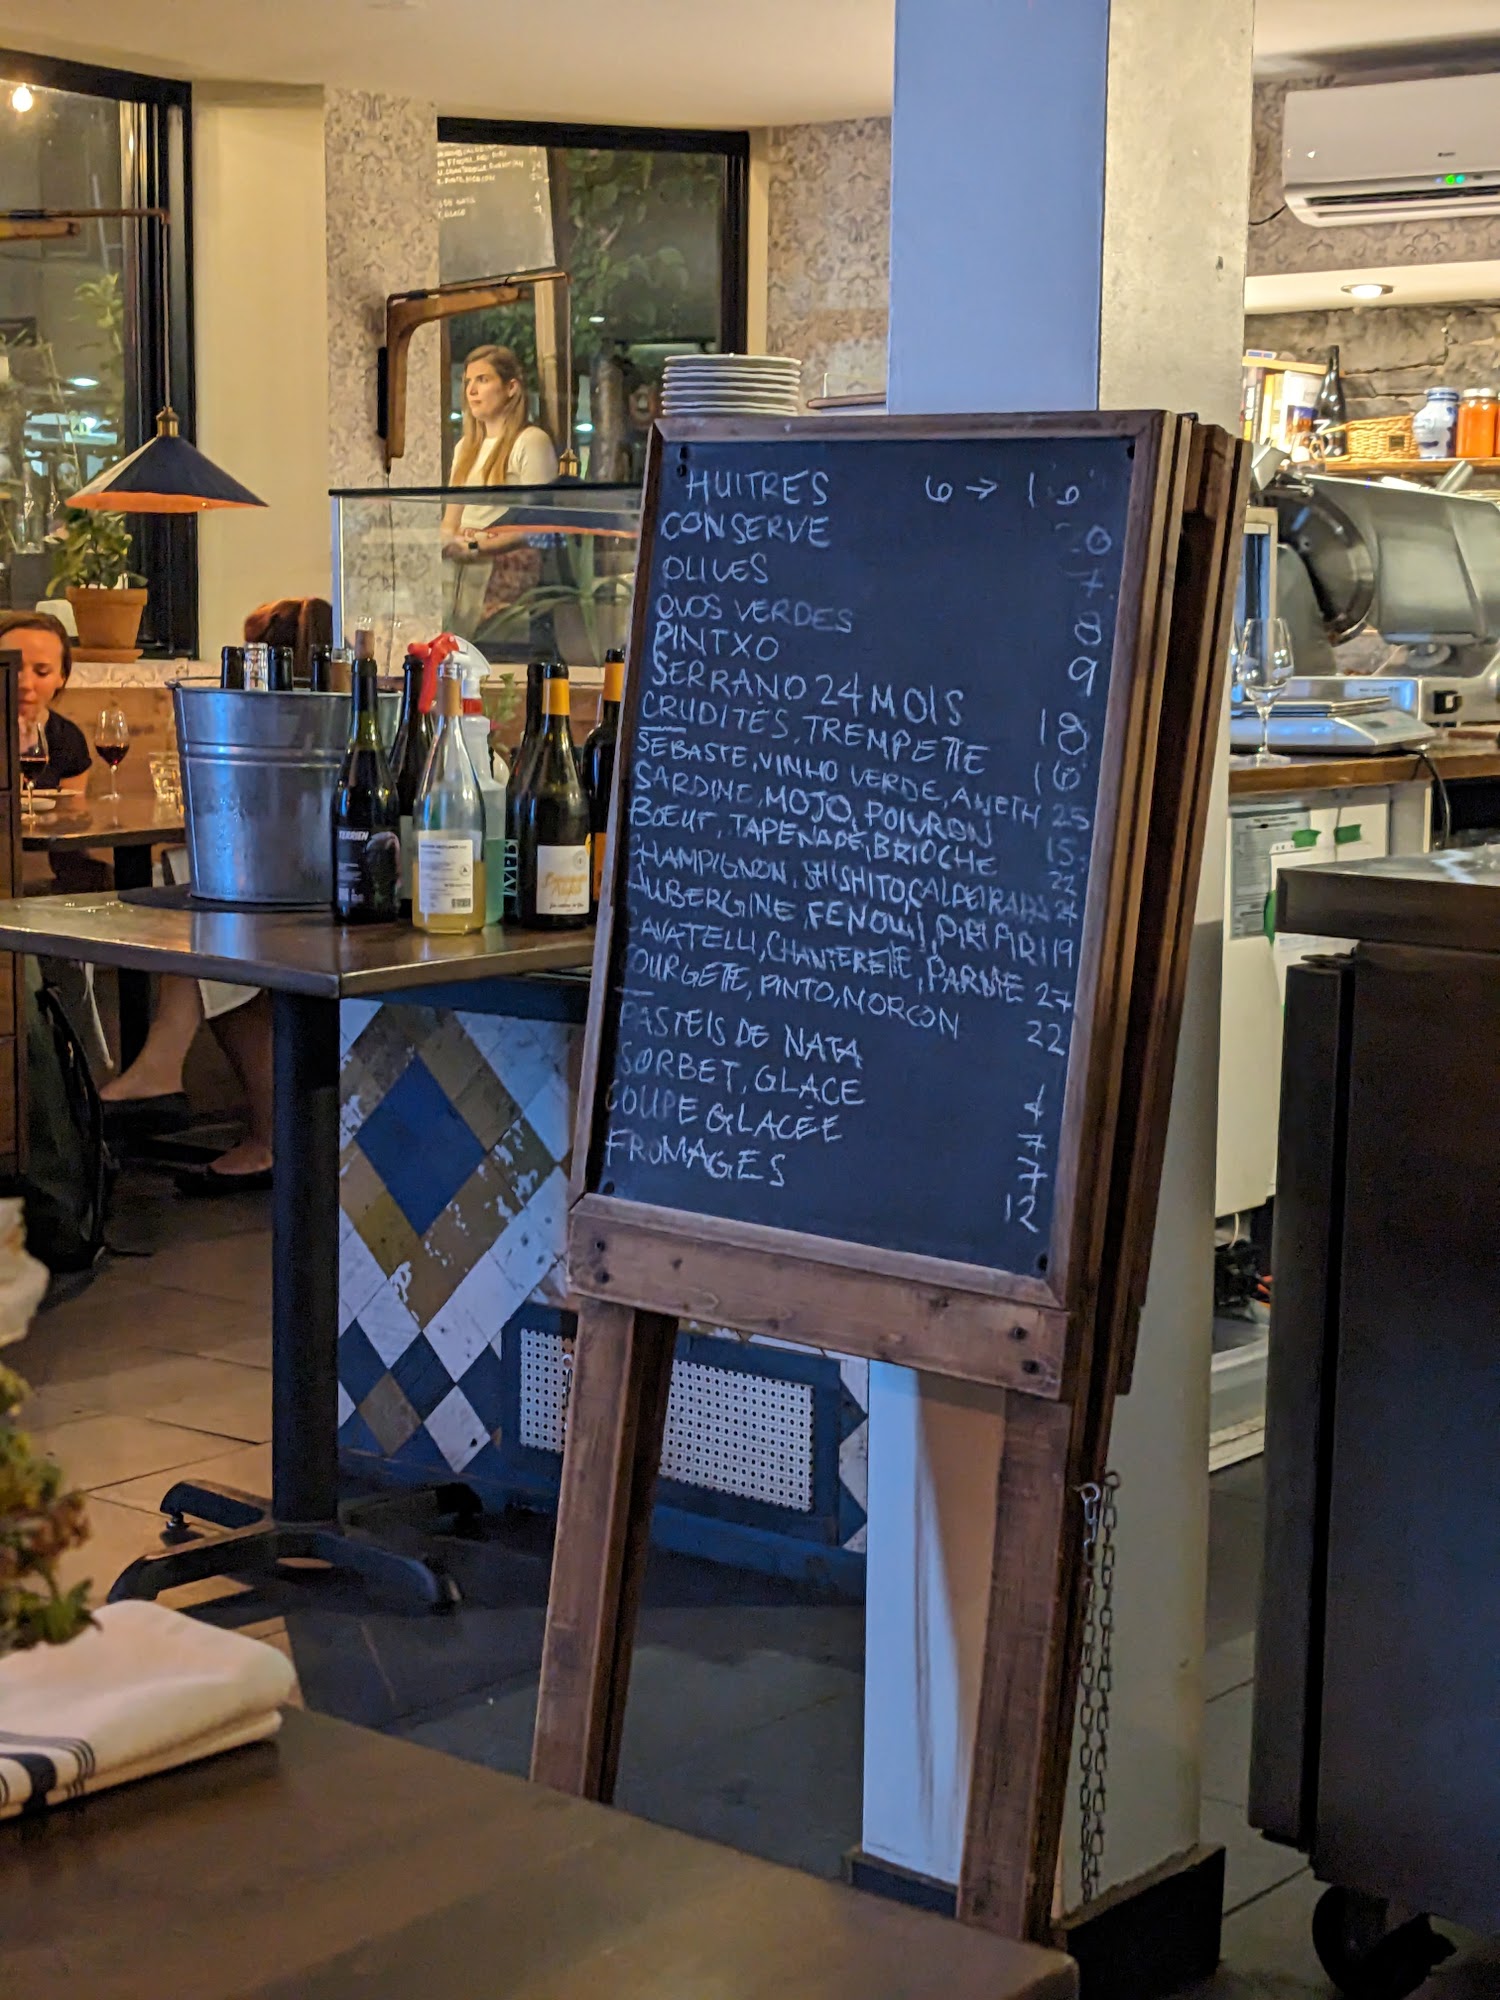 HUITRES 6 → 18
CONSERVE 20
OLIVES 7
OVOS VERDES 8
PINTXO 9
SERRANO 24 MOIS 18
CRUDITÉS, TREMPETTE 16
SÉBASTE, VINHO VERDE, ANETH 25
SARDINE, MOJO, POIVRON 15
BOEUF, TAPENADE, BRIOCHE 22
CHAMPIGNON, SHISHITO, CALDEIRADA 24
AUBERGINE, FENOUIL, PIRI PIRI 19
CAVATELLI, CHANTERELLE, PARMIE 27
COURGETTE, PINTO, NORCON 22
PASTEIS DE NATA 4
SORBET, GLACE 7
COUPE GLACÉE 7
FROMAGES 12
TERRIEN